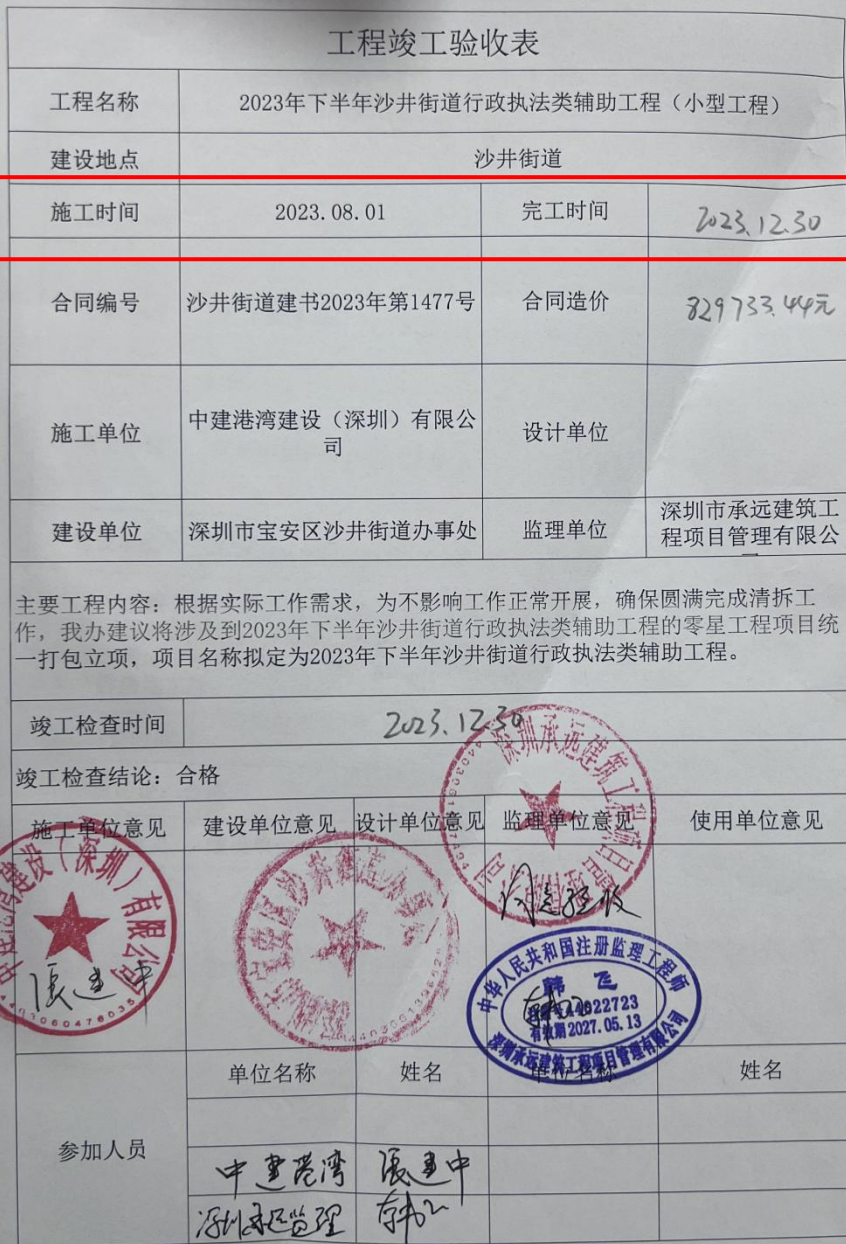 工程竣工验收表
工程名称 2023年下半年沙井街道行政执法类辅助工程（小型工程）
建设地点 沙井街道
施工时间 2023.08.01 完工时间 2023.12.30
合同编号 沙井街道建书2023年第1477号 合同造价 829733.44元
施工单位 中建港湾建设（深圳）有限公司 设计单位
建设单位 深圳市宝安区沙井街道办事处 监理单位 深圳市承远建筑工程项目管理有限公
主要工程内容：根据实际工作需求，为不影响工作正常开展，确保圆满完成清拆工
作，我办建议将涉及到2023年下半年沙井街道行政执法类辅助工程的零星工程项目统
一打包立项，项目名称拟定为2023年下半年沙井街道行政执法类辅助工程。
竣工检查时间 2023.12.30
竣工检查结论：合格
施工单位意见 建设单位意见 设计单位意见 监理单位意见 使用单位意见
建设（深圳）有限公司
张建中
宝安区沙井街道办事
深圳承远建筑工程项目管理有限公司
同意验收
中华人民共和国注册监理工程师
韩飞
44022723
有效期2027.05.13
深圳承远建筑工程项目管理有限公司
参加人员
单位名称 姓名 单位名称 姓名
中建港湾 张建中
深圳承远监理 韩飞